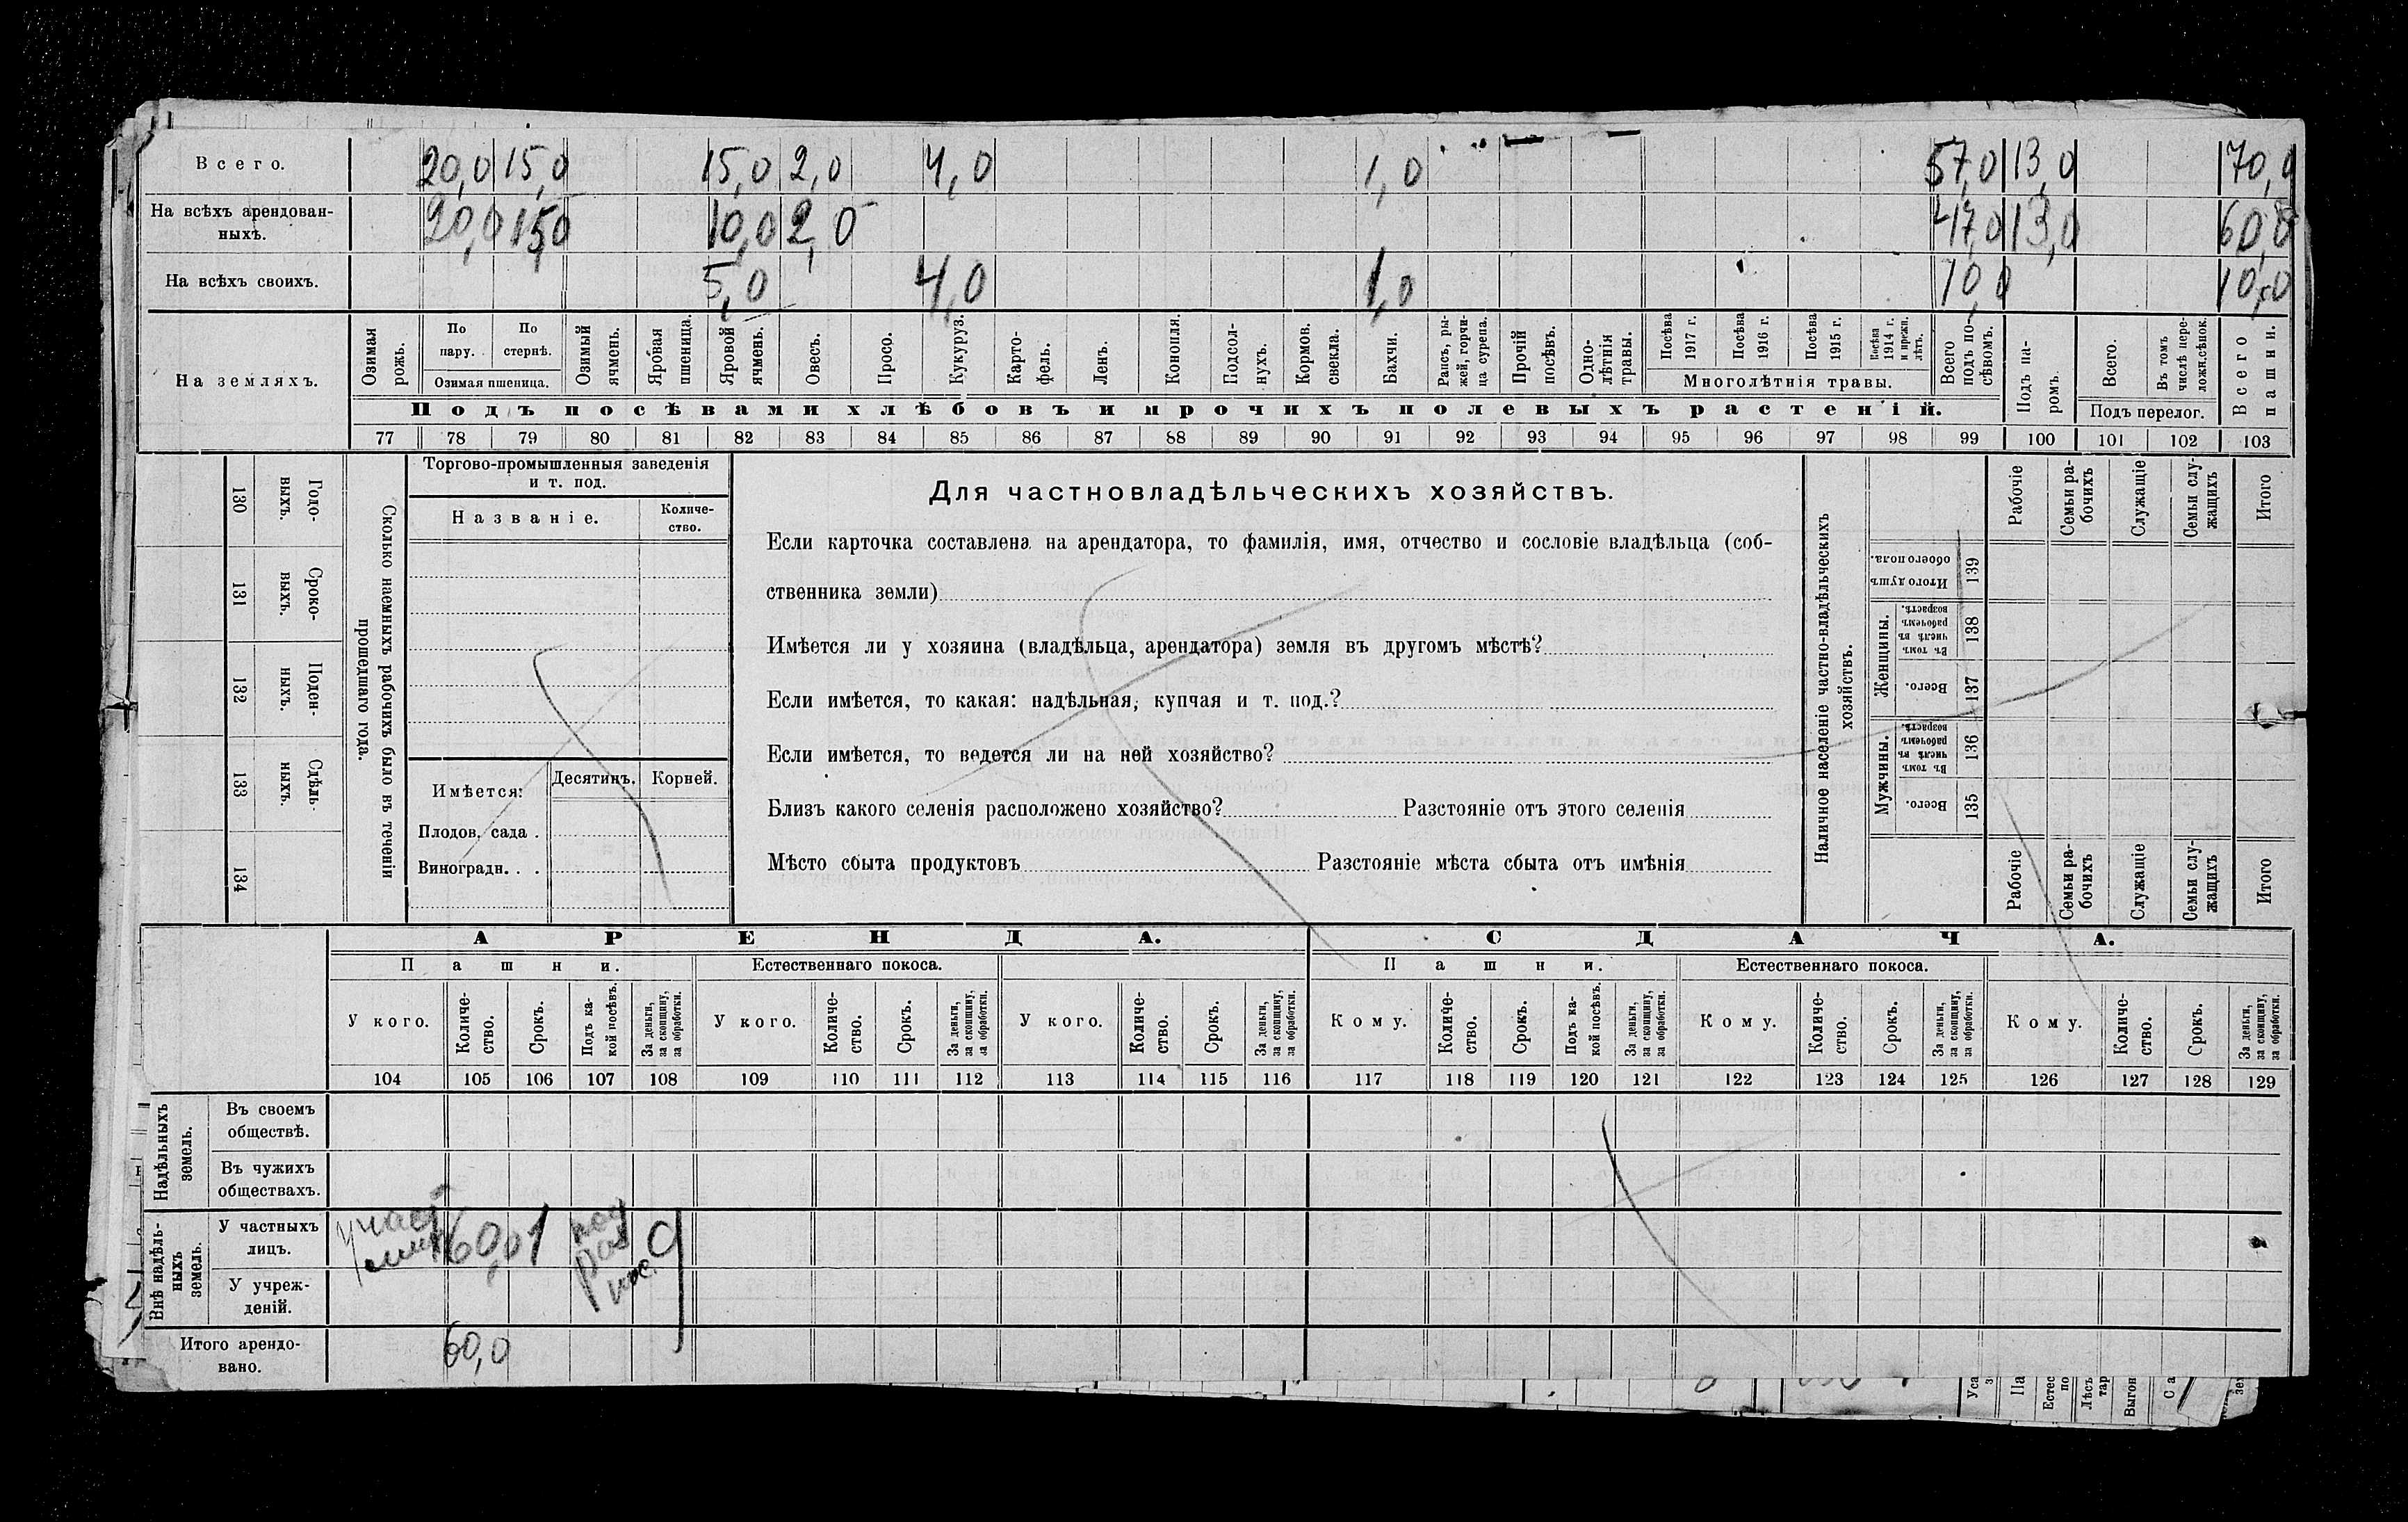 Всего. 20,0 15,0 15,0 2,0 4,0 1,0 57,0 13,0 70,0
На всѣхъ арендован-
ныхъ. 20,0 15,0 10,0 2,0 47,0 13,0 60,0
На всѣхъ своихъ. 5,0 4,0 1,0 10,0 10,0
На земляхъ.
Озимая рожь.
По пару.
По стернѣ.
Озимая пшеница.
Озимый ячмень.
Яровая пшеница.
Яровой ячмень.
Овесъ.
Просо.
Кукуруз.
Карто-
фель.
Ленъ.
Конопля.
Подсол-
нухъ.
Кормов. свекла.
Бахчи.
Рапсъ, ры-
жей, горчи-
ца сурепа.
Прочій посѣвъ.
Одно-
лѣтнія травы.
Посѣва 1917 г.
Посѣва 1916 г.
Посѣва 1915 г.
Посѣва 1914 г. и прежн. лѣтъ.
Многолѣтнія травы.
Всего подъ по-
сѣвомъ.
Подъ посѣвами хлѣбовъ и прочихъ полевыхъ растеній.
Подъ па-
ромъ.
Всего.
Въ томъ числѣ пере-
ложн.сѣнок.
Подъ перелог.
Всего пашни.
77 78 79 80 81 82 83 84 85 86 87 88 89 90 91 92 93 94 95 96 97 98 99 100 101 102 103
130 Годо-
выхъ.
131 Сроко-
выхъ.
132 Поден-
ныхъ.
133 Сдѣль-
ныхъ.
134
Сколько наемныхъ рабочихъ было въ теченіи
прошедшаго года.
Торгово-промышленныя заведенія
и т. под.
Названіе.
Количе-
ство.
Имѣется:
Десятинъ.
Корней.
Плодов. сада .
Виноградн. . .
Для частновладѣльческихъ хозяйствъ.
Если карточка составлена на арендатора, то фамилія, имя, отчество и сословіе владѣльца (соб-
ственника земли)
Имѣется ли у хозяина (владѣльца, арендатора) земля въ другомъ мѣстѣ?
Если имѣется, то какая: надѣльная, купчая и т. под.?
Если имѣется, то ведется ли на ней хозяйство?
Близъ какого селенія расположено хозяйство? Разстояніе отъ этого селенія
Мѣсто сбыта продуктовъ Разстояніе мѣста сбыта отъ имѣнія
Наличное населеніе частно-владѣльческихъ
хозяйствъ.
Рабочіе
Семьи ра-
бочихъ
Служащіе
Семьи слу-
жащихъ
Итого
Итого душъ обоего пола. 139
Женщины.
Въ томъ числѣ въ рабочемъ возрастѣ. 138
Всего. 137
Мужчины.
Въ томъ числѣ въ рабочемъ возрастѣ. 136
Всего. 135
Рабочіе
Семьи ра-
бочихъ
Служащіе
Семьи слу-
жащихъ
Итого
АРЕНДА. СДАЧА.
Пашни. Естественнаго покоса. Пашни. Естественнаго покоса.
У кого.
Количе-
ство.
Срокъ.
Подъ ка-
кой посѣвъ.
За деньги,
за скопщину,
за обработки.
У кого.
Количе-
ство.
Срокъ.
За деньги,
за скопщину,
за обработки.
У кого.
Количе-
ство.
Срокъ.
За деньги,
за скопщину,
за обработки.
Кому.
Количе-
ство.
Срокъ.
Подъ ка-
кой посѣвъ.
За деньги,
за скопщину,
за обработки.
Кому.
Количе-
ство.
Срокъ.
За деньги,
за скопщину,
за обработки.
Кому.
Количе-
ство.
Срокъ.
За деньги,
за скопщину,
за обработки.
104 105 106 107 108 109 110 111 112 113 114 115 116 117 118 119 120 121 122 123 124 125 126 127 128 129
Надѣльныхъ
земель.
Въ своемъ
обществѣ.
Въ чужихъ
обществахъ.
Внѣ надѣль-
ныхъ
земель.
У частныхъ
лицъ. 60,0 1
У учреж-
деній.
Итого арендо-
вано. 60,0
Уса
Па
Естес
по
Лѣсъ
тар
Выгон
Са